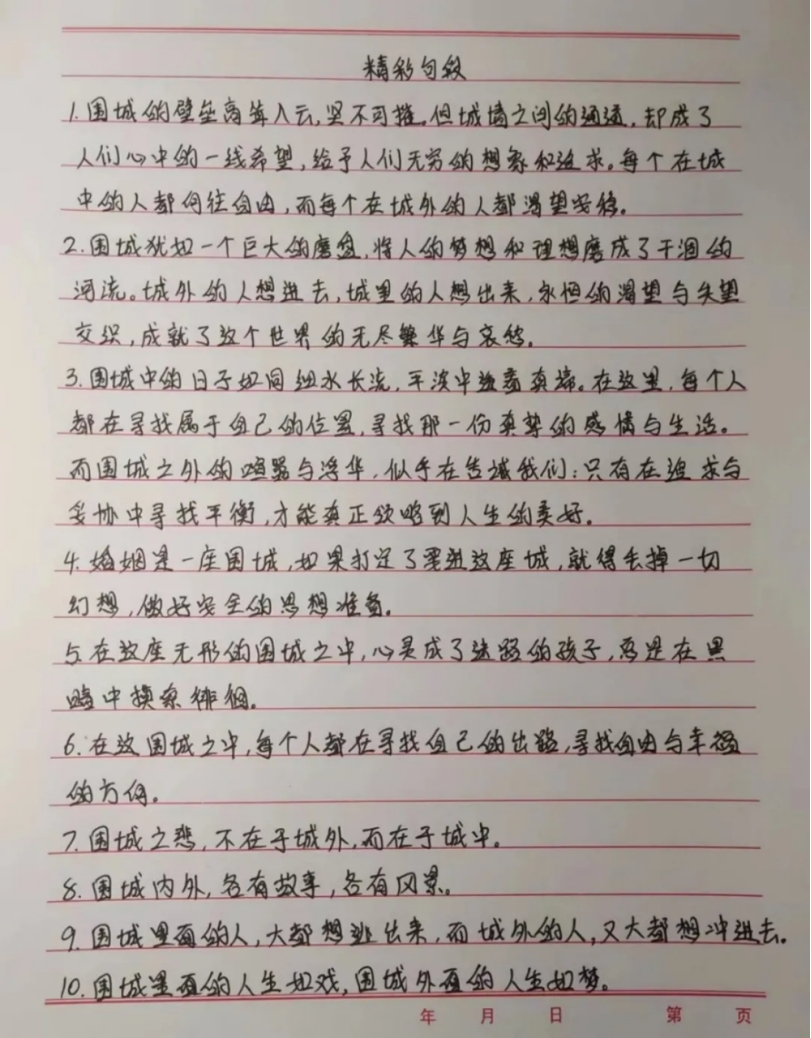 精彩句段
1.围城的壁垒高耸入云,坚不可摧。但城墙之间的通道,却成了
人们心中的一线希望,给予人们无穷的想象和追求。每个在城
中的人都向往自由,而每个在城外的人都渴望安稳。
2.围城犹如一个巨大的磨盘,将人的梦想和理想磨成了干涸的
河流。城外的人想进去,城里的人想出来,永恒的渴望与失望
交织,成就了这个世界的无尽繁华与哀愁。
3.围城中的日子如同细水长流,平淡中蕴着真谛。在这里,每个人
都在寻找属于自己的位置,寻找那一份真挚的感情与生活。
而围城之外的喧嚣与浮华,似乎在告诫我们:只有在追求与
妥协中寻找平衡,才能真正领略到人生的美好。
4.婚姻是一座围城,如果打定了要进这座城,就得丢掉一切
幻想,做好安全的思想准备。
5.在这座无形的围城之中,心灵成了迷路的孩子,总是在黑
暗中摸索徘徊。
6.在这围城之中,每个人都在寻找自己的出路,寻找自由与幸福
的方向。
7.围城之悲,不在于城外,而在于城中。
8.围城内外,各有故事,各有风景。
9.围城里面的人,大都想逃出来,而城外的人,又大都想冲进去。
10.围城里面的人生如戏,围城外面的人生如梦。
年 月 日 第 页